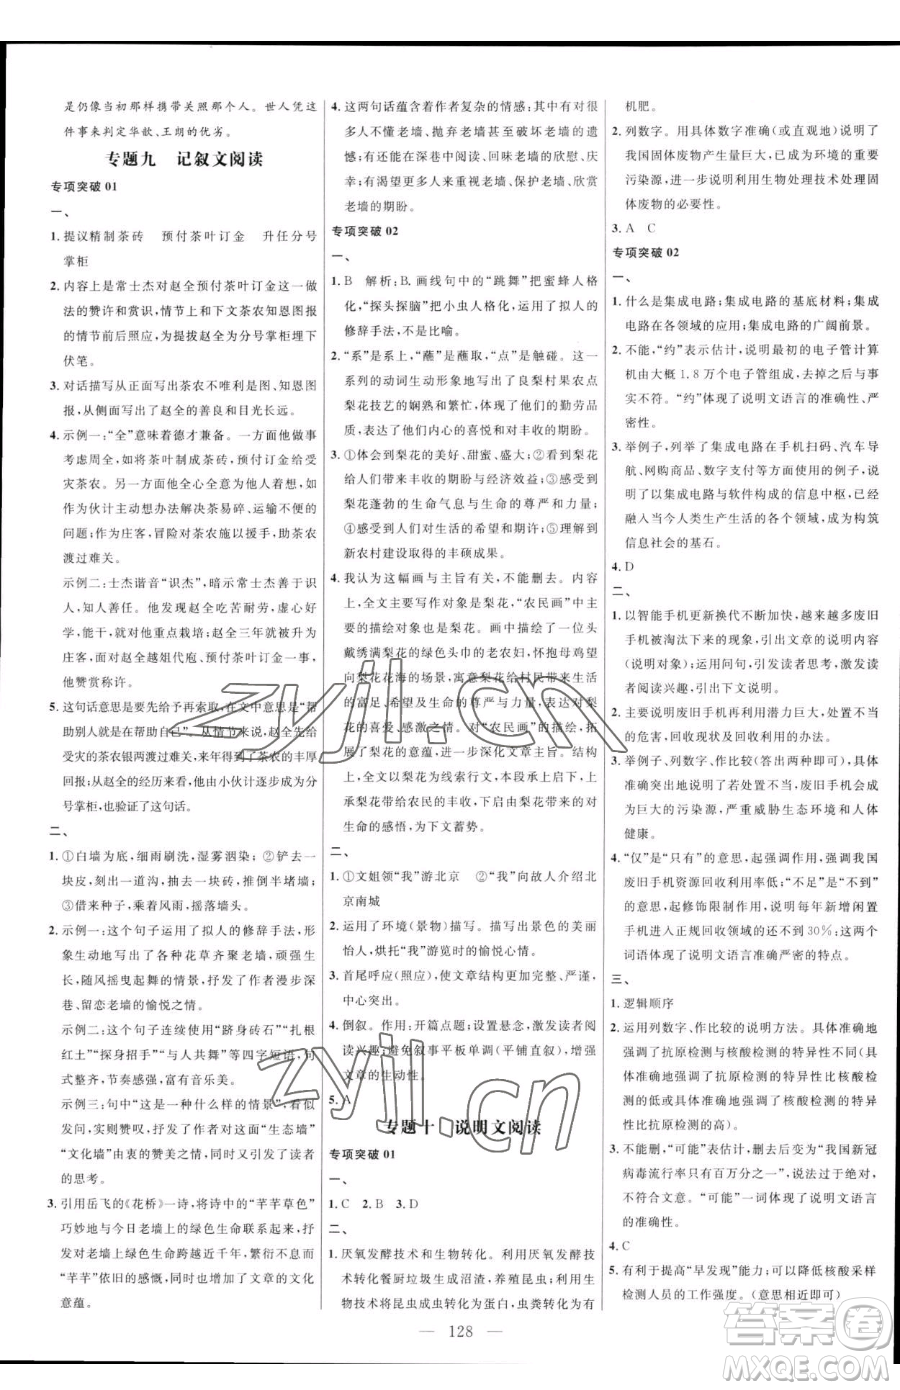 是仍像当初那样携带关照那个人。世人凭这
件事来判定华歆、王朗的优劣。
专题九　记叙文阅读
专项突破 01
一、
1. 提议精制茶砖　预付茶叶订金　升任分号
掌柜
2. 内容上是常士杰对赵全预付茶叶订金这一做
法的赞许和赏识,情节上和下文茶农知恩图报
的情节前后照应,为提拔赵全为分号掌柜埋下
伏笔。
3. 对话描写从正面写出茶农不唯利是图、知恩图
报,从侧面写出了赵全的善良和目光长远。
4. 示例一:“全”意味着德才兼备。一方面他做事
考虑周全,如将茶叶制成茶砖,预付茶叶订金给
受灾茶农。另一方面他细心全意为他人着想,
如作为伙计主动想办法解决茶易碎、运输不便的
问题;作为庄客,冒险对茶农施以援手,助茶农
渡过难关。
示例二:士杰谐音“识杰”,暗示常士杰善于识
人,知人善任。他发现赵全吃苦耐劳,分外勤
能干,就对他重点栽培。赵全三年就被晋升为
庄客,面对赵全越俎代庖、预付茶叶订金一事,
他赞赏称许。
5. 这句话意思是要先给予再索取,在文中意思是“帮
助别人就是在帮助自己”。从情节来说,赵全先给
受灾的茶农银两渡过难关,来年得到了茶农的丰厚
回报;从赵全的经历来看,他由小伙计逐步成为分
号掌柜,也验证了这句话。
二、
1. ①白墙为底,细雨刷洗,湿雾洇染;②铲去一
块皮,刻出一道沟,抽去一块砖,推倒半堵墙;
③借来种子,乘着风雨,摇落墙头。
2. 示例一:这个句子运用了拟人的修辞手法,生
动地写出了各种花草齐聚老墙,在墙头生
长,随风摇曳起舞的情景,抒发了作者漫步深
巷、留恋老墙的愉悦之情。
示例二:这个句子连续使用“跻身砖石”“扎根
红土”“探身招手”“与人共舞”等四字短语,句
式整齐,节奏感强,富有音乐美。
示例三:句中“这是一种什么样的情景”,看似
发问,实则抒发了作者内心对“生态墙”
“文化墙”由衷的赞美之情,引发了读者的
思考。
3. 引用岳飞的《花桥》一诗,将诗中的“芊芊草色”
巧妙地与今日老墙上的绿色生命联系起来,
抒发对老墙上绿色生命跨越近千年,繁衍不息
“芊芊”依旧的感慨,也丰富了文章的文化
意蕴。
4. 这两句话蕴含着作者复杂的情感:有对很多
人不懂老墙、抛弃老墙甚至破坏老墙的遗
憾;有能在深巷中阅读、回味老墙的欣慰、庆
幸;有渴望更多人能重视老墙、保护老墙、欣赏
老墙的期盼。
专项突破 02
一、
1. B　解析:B. 画线句中的“跳舞”把蜜蜂人格
化,“探头探脑”把小虫人格化,运用了拟人的
修辞手法,不是比喻。
2. “系”是系上,“蘸”是蘸取,“点”是触碰。这一
系列的动词生动形象地写出了良梨村果农点
梨花技艺的娴熟和繁忙,体现了他们的勤劳品
质,也写出了他们内心的喜悦和对丰收的期盼。
3. ①体会到梨花的美好、甜蜜、盛大;②看到梨花
给人们带来丰收的期盼与经济效益;③感受到
梨花蓬勃的生命气息与生命的尊严和力量;
④感受到人们对生活的希望和期许;⑤理解到
新农村建设取得的丰硕成果。
4. 我认为这幅画与主旨有关,不能删去。内容
上,全文主要写作对象是梨花,“农民画”中主
要的描绘对象也是梨花。画中描绘了一位头
戴绣满梨花的绿色头巾的老农妇,怀抱母鸡望
向梨花花海的场景,寓意梨花给村民带来生活
的富足、希望及生命的尊严与力量,表达了对
梨花的喜爱、感激之情。对“农民画”的描绘,拓
展了梨花的意蕴,进一步深化文章主旨。结构
上,全文以梨花为线索行文,结尾以“农民画”
来收束梨花带给农民的丰收,引出梨花带给“我”对
生命的感悟,为下文蓄势。
二、
1. ①文姐领“我”游北京　②“我”向故人介绍北
京南城
2. 运用了环境(景物)描写。描写出景色的美丽
怡人,烘托“我”游览时的愉悦心情。
3. 首尾呼应(照应),使文章结构更加完整、严谨,
中心突出。
4. 倒叙。作用:开篇点题;设置悬念,激发读者阅
读兴趣;避免叙事平板单调(平铺直叙),增强
文章的生动性。
5. A
专题十　说明文阅读
专项突破 01
一、
1. C　2. B　3. D
二、
1. 厌氧发酵技术和生物转化。利用厌氧发酵
技术转化餐厨垃圾生成沼渣,养殖昆虫;利用
生物技术将昆虫成虫转化为蛋白,虫粪转化为有
机肥。
2. 列数字。用具体数字准确(或直观地)说明了
我国固体废物产生量巨大,已成为环境的重要
污染源,进一步说明利用生物处理技术处理固
体废物的必要性。
3. A　C
专项突破 02
一、
1. 什么是集成电路;集成电路的基底材料;集成
电路在各领域的应用;集成电路的广阔前景。
2. 不能,“约”表示估计,说明最初的电子管计算
机由大概 1.8 万个电子管组成,去掉之后与事
实不符。“约”体现了说明文语言的准确性、严
密性。
3. 举例子,列举了集成电路在手机扫码、汽车导
航、网购商品、数字支付等方面使用的例子,说
明了以集成电路与软件构成的信息中枢,已经
融入当今人类生产生活的各个领域,成为构筑
信息社会的基石。
4. D
二、
1. 以智能手机更新换代不断加快,越来越多废旧
手机被淘汰下来的现象,引出文章的说明内容
(说明对象);运用问句,引发读者思考,激发
读者阅读兴趣,引出下文。
2. 主要说明废旧手机再利用潜力巨大,处置不当
的危害,回收现状以及回收利用的办法。
3. 举例子、列数字、作比较(答出两种即可)。具
体准确地说明了处置不当,废旧手机会成
为巨大的污染源,严重威胁生态环境和人体
健康。
4. “仅”是“只有”的意思,起强调作用,强调我国
废旧手机资源回收利用率低;“不足”是“不到”的
意思,起修饰限制作用,说明每年新增闲置
手机进入正规回收领域的还不到 30%;这两个
词语体现了说明文语言准确严密的特点。
三、
1. 逻辑顺序
2. 运用列数字、作比较的说明方法。具体准确地
强调了抗原检测与核酸检测的特异性比较,具体
准确地说明了抗原检测的特异性与核酸
检测的特异性相比,抗原检测的特异性
比核酸检测低。
3. 不能删,“可能”表估计,删去后变为“我国新冠
病毒流行率只有百万分之一”,说法过于绝对,
不符合文意。“可能”一词体现了说明文语言
的准确性。
4. C
5. 有利于提高“早发现”能力;可以降低核酸采样
检测人员的工作强度。(意思相近即可)
— 128 —
zyjl.cn
zyjl.cn
答案圈
MXQE.COM